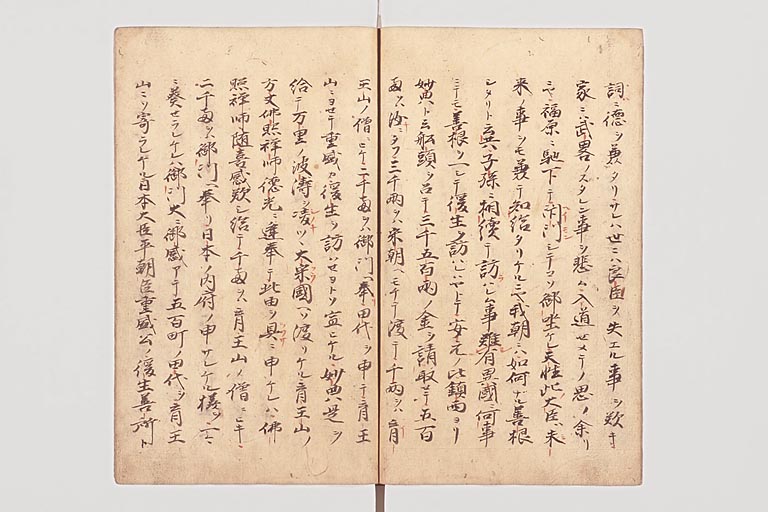 詞ニ徳ヲ兼タリサレハ世ニハ良臣ヲ失エル事ヲ歎キ
家ニハ武畧ノスタレン事ヲ悲ム入道セメテノ思ノ余リ
ニヤ福原ニ馳下テ閇門シテソ御坐ケル天性此大臣ハ未
来ノ事ヲモ兼テ知給タリケルニヤ我朝ニハ如何ナル善根
シタリト云共子孫ニ相續テ訪ハレム事難有異國ニ何事
ニテモ善根ヲ一シテ後生ヲ訪ハレハヤトテ安元ノ比鎮西ヨリ
妙典ト云舩頭ヲ召テ三千五百両ノ金ヲ請取セテ五百
両ヲハ汝ニタフ三千両ヲハ宋朝ヘモチテ渡テ千両ヲハ育
王山ノ僧ニヒケ二千両ヲハ御門ヘ奉田代ヲ申テ育王
山ニヨセテ重盛カ後生ヲ訪ハセヨトソ宣ヒケル妙典是ヲ
給テ万里ノ波濤ヲ凌ツヽ大宋國ヘソ渡リケル育王山ノ
方丈佛照禅師徳光ニ逢奉テ此由ヲ具ニ申ケレハ佛
照禅師随喜感歎シ給テ千両ヲハ育王山ノ僧ニヒキ
二千両ヲハ御門ヘ奉リ日本ノ内府ノ申サレケル様ヲ具
ニ奏セラレケレハ御門大ニ御感アテ五百町ノ田代ヲ育王
山ニソ寄ラレケル日本大臣平朝臣重盛公ノ後生善所ト